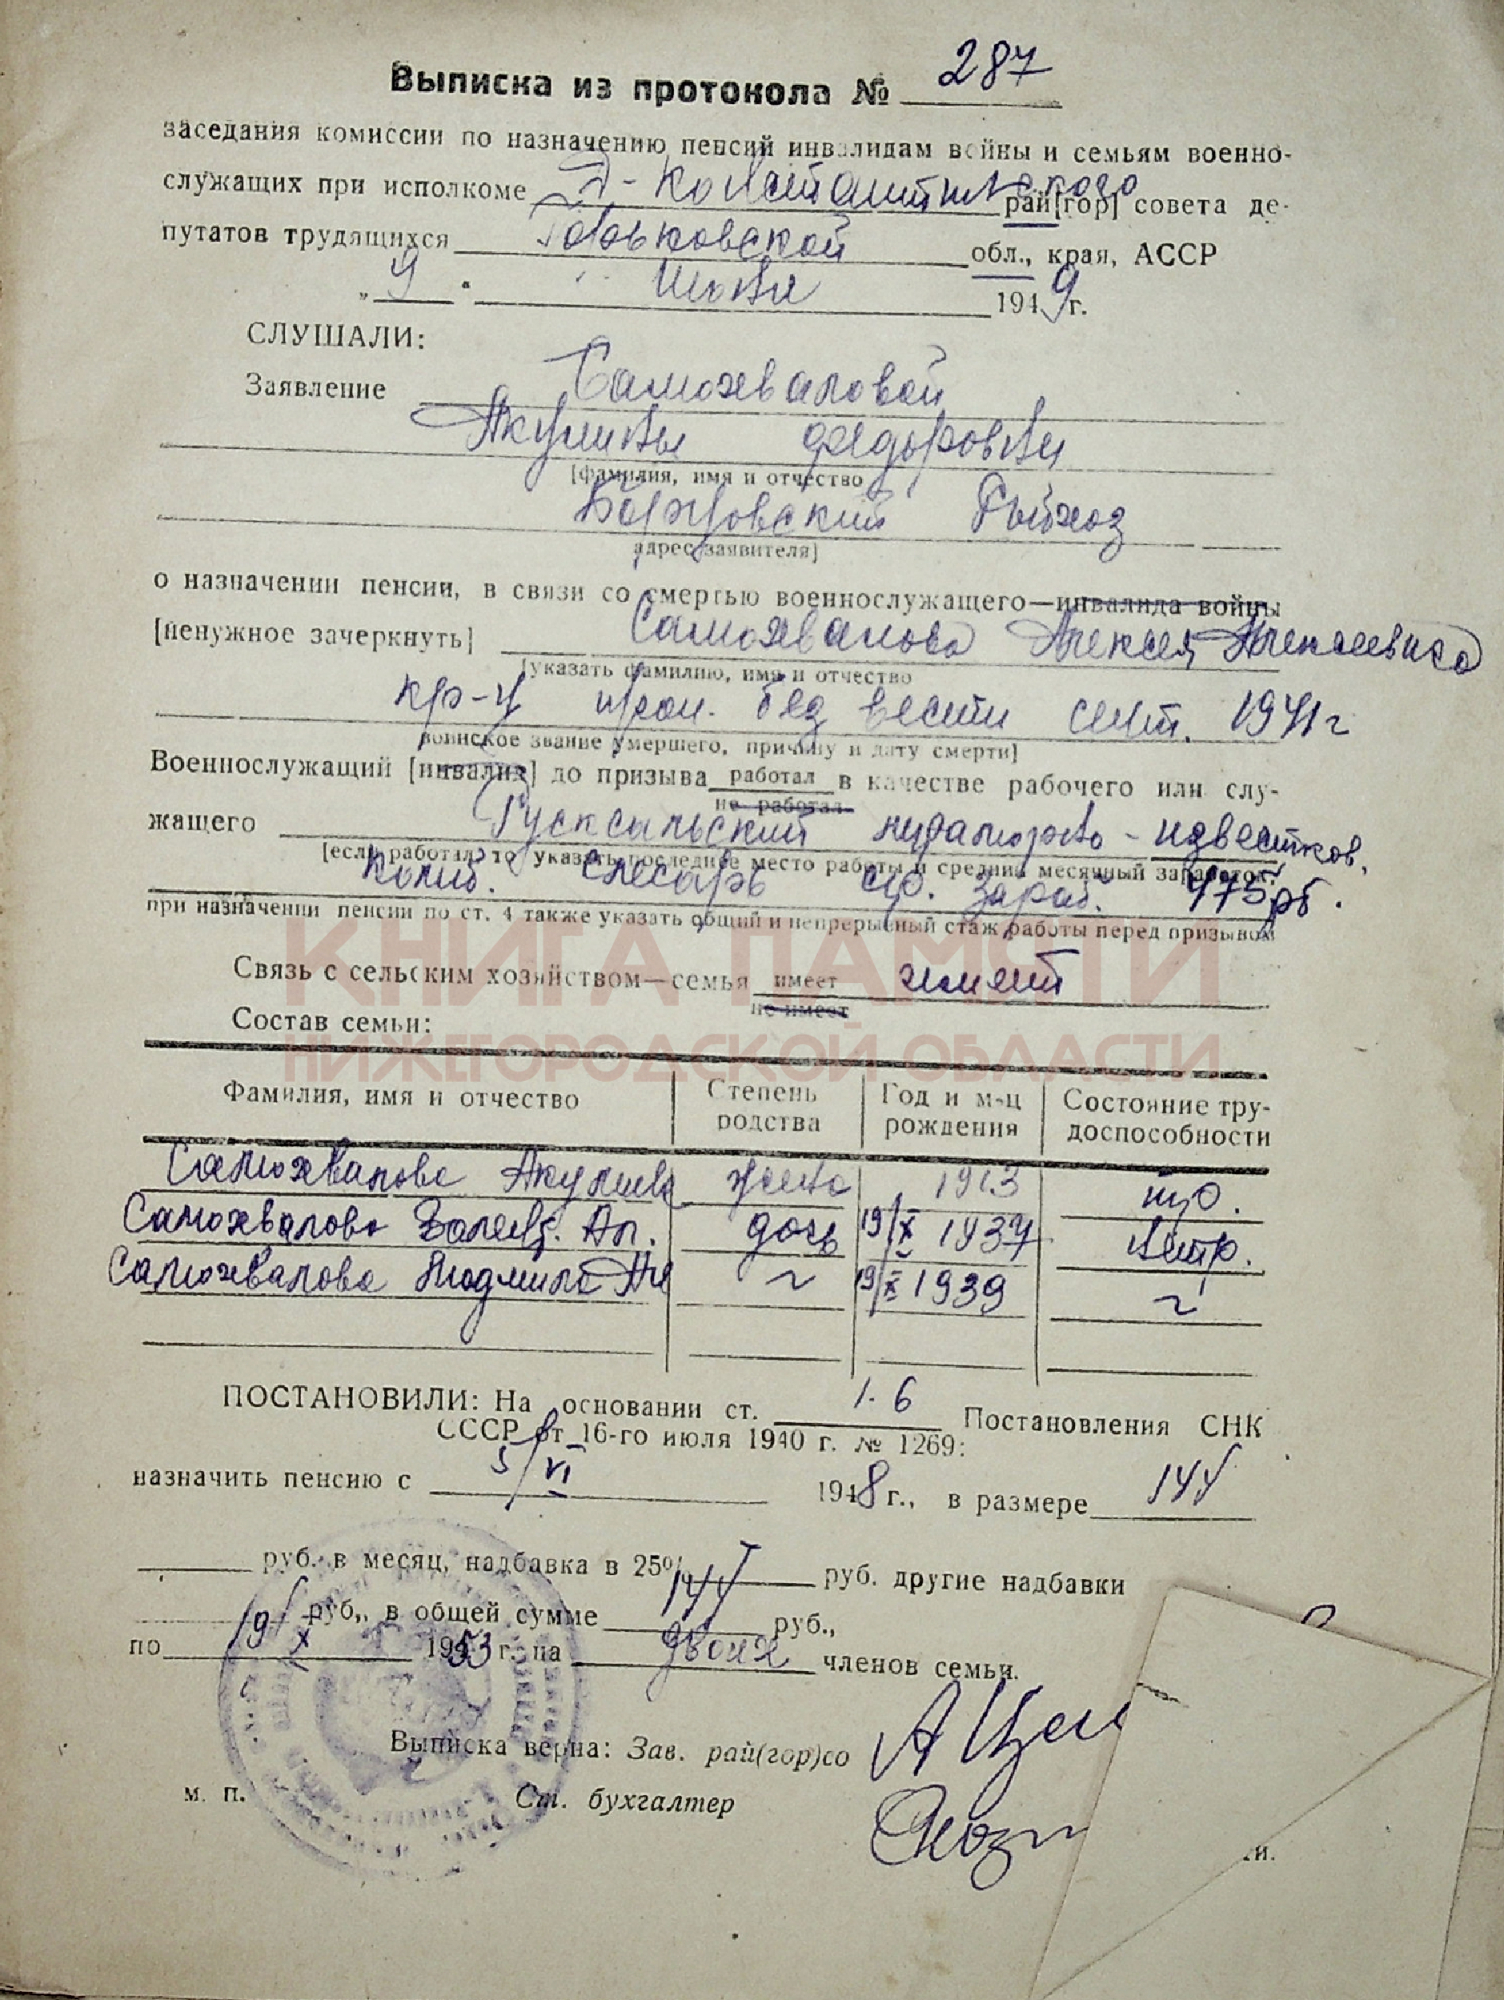 Выписка из протокола № 287
заседания комиссии по назначению пенсий инвалидам войны и семьям военно-
служащих при исполкоме Д-Константиновского рай[гор] совета де-
путатов трудящихся Горьковской обл., края, АССР
„9“ июня 1949 г.
СЛУШАЛИ:
Заявление Самохваловой
Акулины Федоровны
[фамилия, имя и отчество
Рыбхоз
адрес заявителя]
о назначении пенсии, в связи со смертью военнослужащего—инвалида войны
[ненужное зачеркнуть] Самохвалова Алексея Алексеевича
[указать фамилию, имя и отчество
кр-ц проп. без вести сент. 1941 г
воинское звание умершего, причину и дату смерти]
Военнослужащий [инвалид] до призыва работал в качестве рабочего или слу-
не работал
жащего - известков.
[если работал, то указать последнее место работы и средний месячный заработок:
комб. слесарь ср. зараб. 475 рб.
при назначении пенсии по ст. 4 также указать общий и непрерывный стаж работы перед призывом
КНИГА ПАМЯТИ
Связь с сельским хозяйством—семья имеет имеет
не имеет
Состав семьи:
НИЖЕГОРОДСКОЙ ОБЛАСТИ
Фамилия, имя и отчество Степень родства Год и м-ц рождения Состояние тру-доспособности
Самохвалова Акулина жена 1913 труд.
Самохвалова Валент. Ал. дочь 19/X 1937 нетр.
Самохвалова Людмила Ал 〃 19/X 1939 〃
ПОСТАНОВИЛИ: На основании ст. 1. 6 Постановления СНК
СССР от 16-го июля 1940 г. № 1269:
назначить пенсию с 5/VI 1948 г., в размере 144
руб. в месяц, надбавка в 25% руб. другие надбавки
руб., в общей сумме 144 руб.,
по 19/X 1953 г. на двоих членов семьи.
Выписка верна: Зав. рай(гор)со
м. п. Ст. бухгалтер